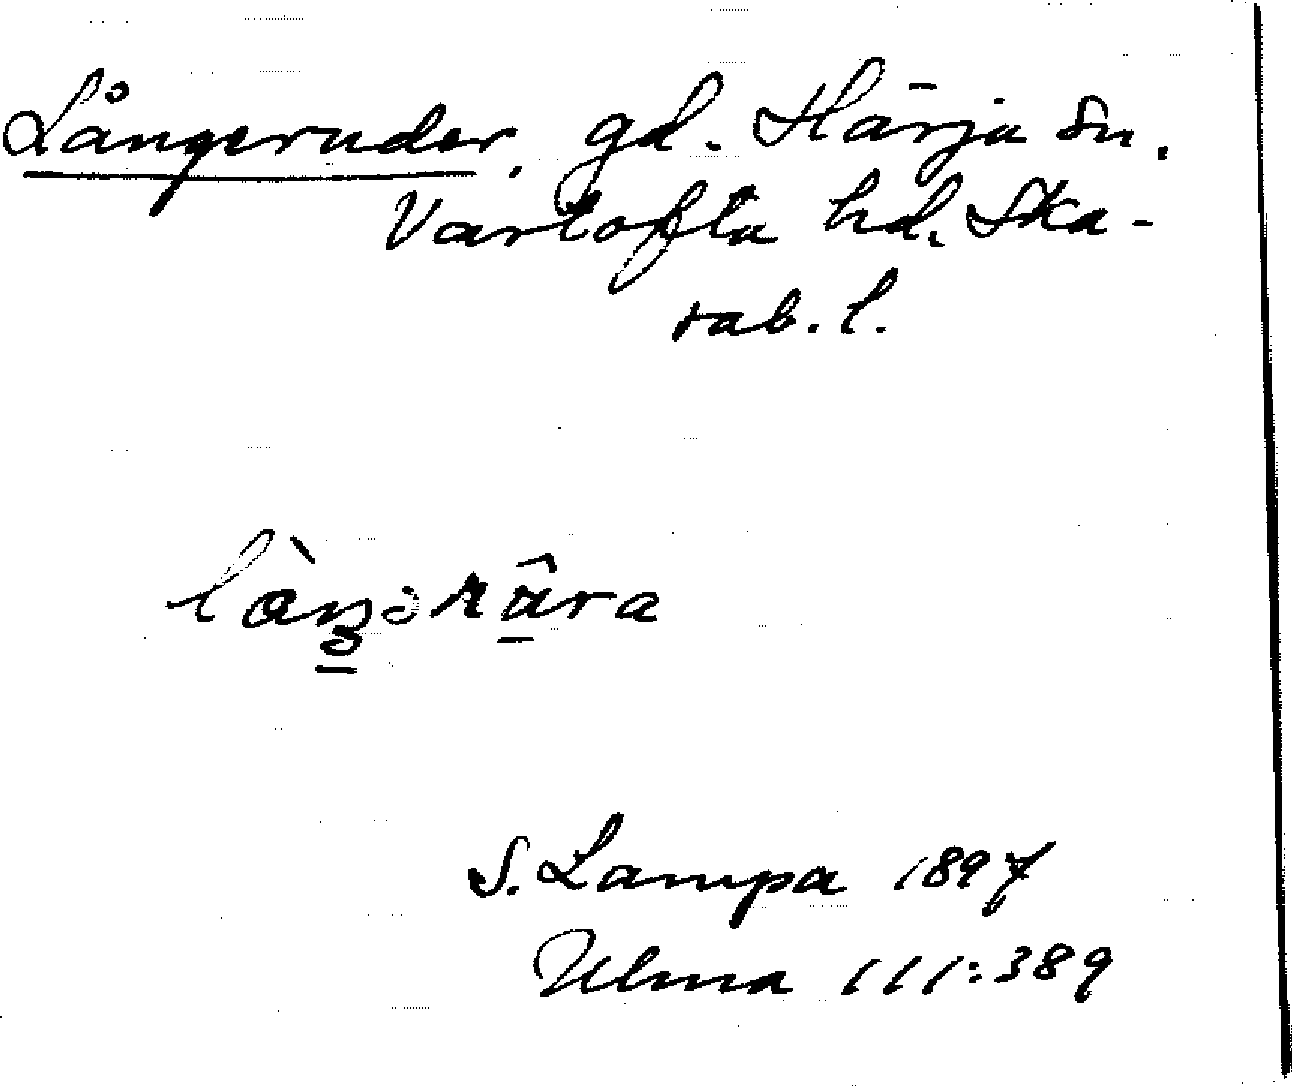 Långeruder, gd. Härja sn.
Vartofta hd. Ska-
rab. l.
S. Lampa 1897
Ulma 111:389